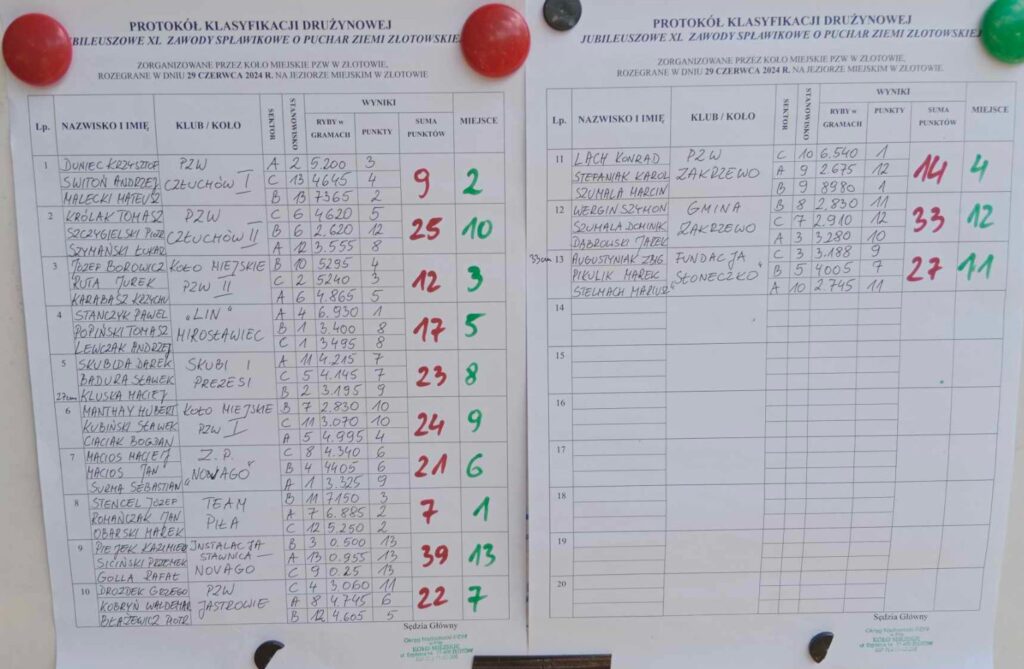 PROTOKÓŁ KLASYFIKACJI DRUŻYNOWEJ
JUBILEUSZOWE XL ZAWODY SPŁAWIKOWE O PUCHAR ZIEMI ZŁOTOWSKIEJ
ZORGANIZOWANE PRZEZ KOŁO MIEJSKIE PZW W ZŁOTOWIE,
ROZEGRANE W DNIU 29 CZERWCA 2024 R. NA JEZIORZE MIEJSKIM W ZŁOTOWIE
Lp. NAZWISKO I IMIĘ KLUB / KOŁO SEKTOR STANOWISKO WYNIKI MIEJSCE
RYBY w GRAMACH PUNKTY SUMA PUNKTÓW
1 DUNIEC KRZYSZTOF PZW A 2 5.200 3
ŚWITOŃ ANDRZEJ CZŁUCHÓW I C 13 4645 4 9 2
MALECKI MATEUSZ B 13 7365 2
2 KRÓLAK TOMASZ PZW C 6 4620 5
SZCZYGIELSKI PIOTR CZŁUCHÓW II B 6 2.620 12 25 10
SZYMAŃSKI ŁUKASZ A 12 3.555 8
3 JÓZEF BOROWICZ KOŁO MIEJSKIE B 10 5295 4
RUTA JUREK PZW II C 2 5240 3 12 3
KARABASZ KRZYCHU A 6 4.865 5
4 STAŃCZYK PAWEŁ "LIN" A 4 6.930 1
POPIŃSKI TOMASZ MIROSŁAWIEC B 1 3.400 8 17 5
LEWCZAK ANDRZEJ C 1 3495 8
5 SKUBIDA DAREK SKUBI I A 11 4.215 7
BADURA SŁAWEK PREZESI C 5 4.145 7 23 8
27cm KLUSKA MACIEJ B 2 3.195 9
6 MANTHAY HUBERT KOŁO MIEJSKIE B 7 2.830 10
KUBIŃSKI SŁAWEK PZW I C 11 3.070 10 24 9
CIACIAK BOGDAN A 5 4.995 4
7 MACIOS MACIEJ Z.P. C 8 4.340 6
MACIOS JAN "NOVAGO" B 4 4405 6 21 6
SURMA SEBASTIAN A 1 3.325 9
8 STENCEL JÓZEF TEAM B 11 7150 3
ROMAŃCZAK JAN PIŁA A 7 6.885 2 7 1
OBARSKI MAREK C 12 5.250 2
9 PIEJEK KAZIMIERZ INSTALACJA B 3 0.500 13
SICIŃSKI PRZEMEK STAWNICA - A 13 0.955 13 39 13
GOLLA RAFAŁ NOVAGO C 9 0.25 13
10 DROZDEK GRZEGO PZW C 4 3.060 11
KOBRYŃ WALDEMAR JASTROWIE A 8 4.745 6 22 7
BŁAŻEWICZ PIOTR B 12 4.605 5
Sędzia Główny
KOŁO MIEJSKIE
PROTOKÓŁ KLASYFIKACJI DRUŻYNOWEJ
JUBILEUSZOWE XL ZAWODY SPŁAWIKOWE O PUCHAR ZIEMI ZŁOTOWSKIEJ
ZORGANIZOWANE PRZEZ KOŁO MIEJSKIE PZW W ZŁOTOWIE,
ROZEGRANE W DNIU 29 CZERWCA 2024 R. NA JEZIORZE MIEJSKIM W ZŁOTOWIE
Lp. NAZWISKO I IMIĘ KLUB / KOŁO SEKTOR STANOWISKO WYNIKI MIEJSCE
RYBY w GRAMACH PUNKTY SUMA PUNKTÓW
11 LACH KONRAD PZW C 10 6.540 1
STEFANIAK KAROL ZAKRZEWO A 9 2.675 12 14 4
SZUMALA MARCIN B 9 8980 1
12 WERGIN SZYMON GMINA B 8 2.830 11
SZUMALA DOMINIK ZAKRZEWO C 7 2.910 12 33 12
DĄBROWSKI JAREK A 3 3280 10
33cm 13 AUGUSTYNIAK ZBIG. FUNDACJA C 3 3.188 9
PIKULIK MAREK "SŁONECZKO" B 5 4005 7 27 11
STELMACH MARIUSZ A 10 2.745 11
14
15
16
17
18
19
20
Sędzia Główny
KOŁO MIEJSKIE